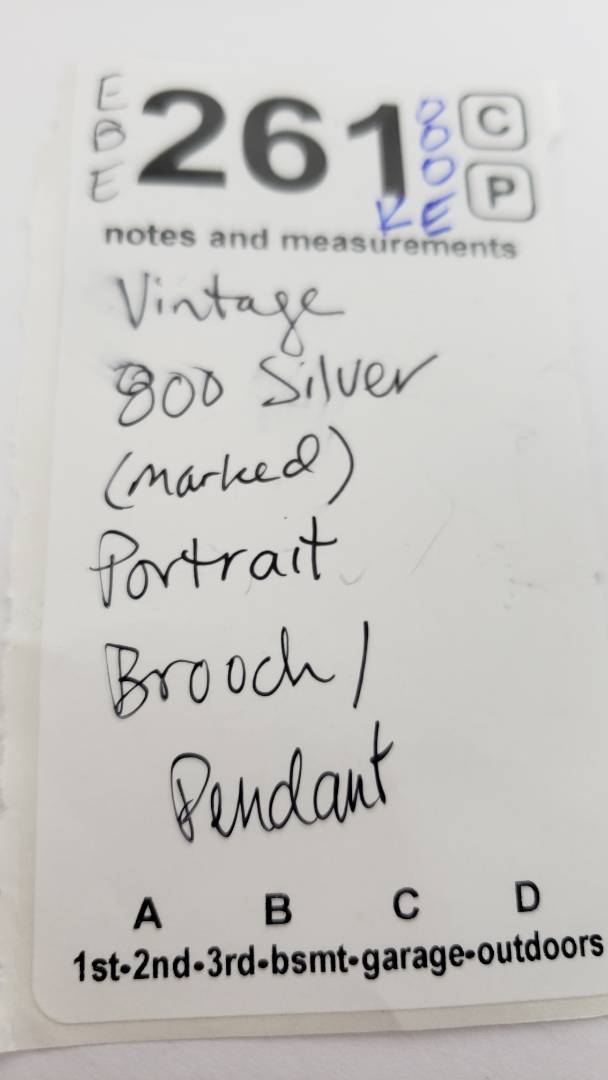 E
B
E
261
C
P
KE
notes and measurements
Vintage
800 Silver
(marked)
Portrait
Brooch /
Pendant
A B C D
1st-2nd-3rd-bsmt-garage-outdoors